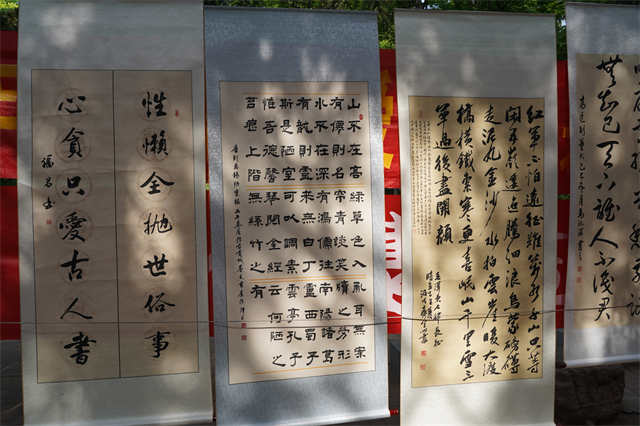 性懶全拋世俗事
心貪只愛古人書
山不在高
有僊則名
水不在深
有龍則靈
斯是陋室
惟吾德馨
苔痕上階
綠草色入
簾青談笑
有鴻儒往
來無白丁
可以調素
琴閱金經
無絲竹之
亂耳無案
牘之勞形
南陽諸葛
廬西蜀子
雲亭孔子
云何陋之
有
紅軍不怕遠征難萬水千山只等
閑五嶺逶迤騰細浪烏蒙磅礴
走泥丸金沙水拍雲崖暖大渡
橋橫鐵索寒更喜岷山千里雪三
軍過後盡開顏
無知己天下誰人不識君
高適別董大